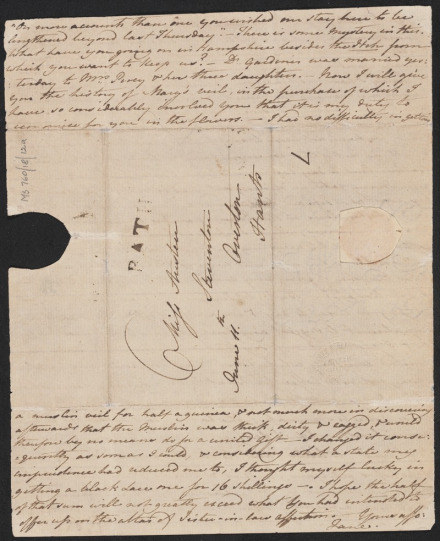 "On more accounts than one you wished our stay here to be
lengthened beyond last Thursday." - There is some Mystery in this.
What have you going on in Hampshire besides the Itch from
which you want to keep us? - Dr. Gardiner was married yes-
terday to Mrs. Percy & her three daughters. - Now I will give
you the history of Mary's veil, in the purchase of which I
have so considerably involved you that it is my duty to
economise for you in the flowers. - I had no difficulty in getting
MS 760/18/12a
7
BATH
Miss Austen
Steventon
Overton
Hants
June 11.th
a muslin veil for half a guinea, & not much more in discovering
afterwards that the Muslin was thick, dirty & ragged, & would
therefore by no means do for a united Gift. - I changed it conse-
quently as soon as I could & considering what a state my
imprudence had reduced me to, I thought myself lucky in
getting a black Lace one for 16 shillings. - I hope the half
of that sum will not greatly exceed what You had intended to
offer up on the altar of Sister-in-law affection. - Yours affec:
Jane.